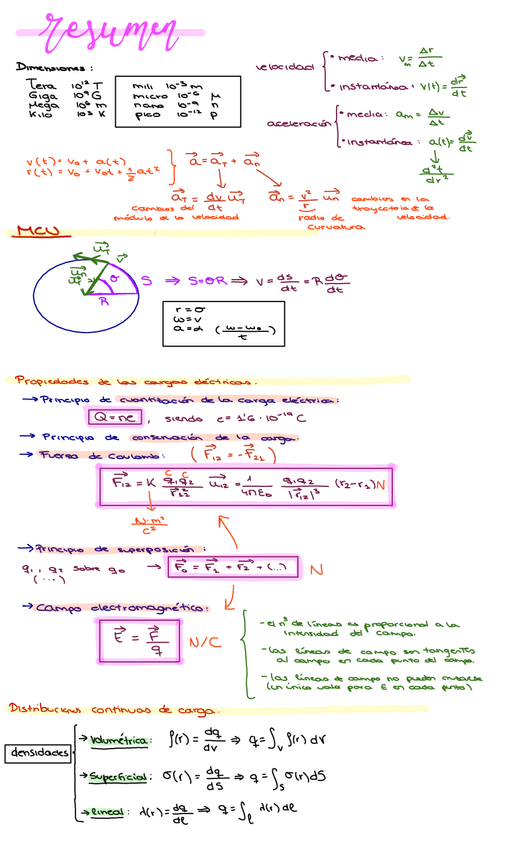 resumen
Dimensiones:
Tera 10¹² T
Giga 10⁹ G
Mega 10⁶ M
Kilo 10³ K
mili 10⁻³ m
micro 10⁻⁶ μ
nano 10⁻⁹ n
pico 10⁻¹² p
velocidad
• media: vₘ = Δr/Δt
• instantánea: v(t) = dr⃗/dt
aceleración
• media: aₘ = Δv/Δt
• instantánea: a(t) = dv⃗/dt
d²t/dr²
v(t) = v₀ + a(t)
r(t) = v₀ + v₀t + 1/2 at²
a⃗ = a⃗_T + a⃗_n
a⃗_T = dv/dt u⃗_T
cambios del módulo de la velocidad
a⃗_n = v²/r u⃗_n
radio de curvatura
cambios en la trayectoria de la velocidad.
MCU
S ⇒ S=θR ⇒ v = ds/dt = R dθ/dt
R
r = θ
ω = v
a = α (ω-ω₀/t)
Propiedades de las cargas eléctricas.
→ Principio de cuantización de la carga eléctrica:
Q = ne, siendo e = 1'6 · 10⁻¹⁹ C
→ Principio de conservación de la carga.
→ Fuerza de Coulomb: (F⃗₁₂ = -F⃗₂₁)
C C
F⃗₁₂ = K q₁q₂/r⃗₁₂² u⃗₁₂ = 1/4πε₀ q₁q₂/|r⃗₁₂|³ (r₂-r₁) N
N·m²/C²
→ Principio de superposición:
q₁, q₂ sobre q₀ → F⃗₀ = F⃗₁ + F⃗₂ + (...) N
(...)
→ Campo electromagnético:
E⃗ = F⃗/q N/C
- el nº de líneas es proporcional a la
intensidad del campo.
- Las líneas de campo son tangentes
al campo en cada punto del campo.
- las líneas de campo no pueden cruzarse
(un único valor para E en cada punto)
Distribuciones continuas de carga.
densidades
→ Volumétrica: ρ(r) = dq/dv ⇒ q = ∫ᵥ ρ(r) dV
→ Superficial: σ(r) = dq/dS ⇒ q = ∫ₛ σ(r) dS
→ Lineal: λ(r) = dq/dℓ ⇒ q = ∫ℓ λ(r) dℓ